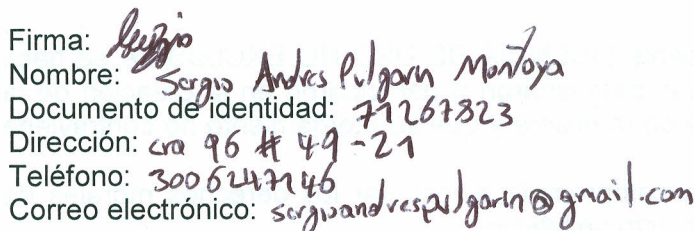 Firma: Sergio
Nombre: Sergio Andres Pulgarin Montoya
Documento de identidad: 71267823
Dirección: cra 96 # 49-21
Teléfono: 3006247146
Correo electrónico: sergioandrespulgarin@gmail.com